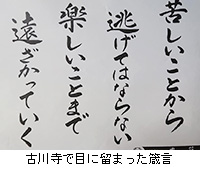 苦しいことから
逃げてはならない
楽しいことまで
遠ざかっていく
古川寺で目に留まった箴言